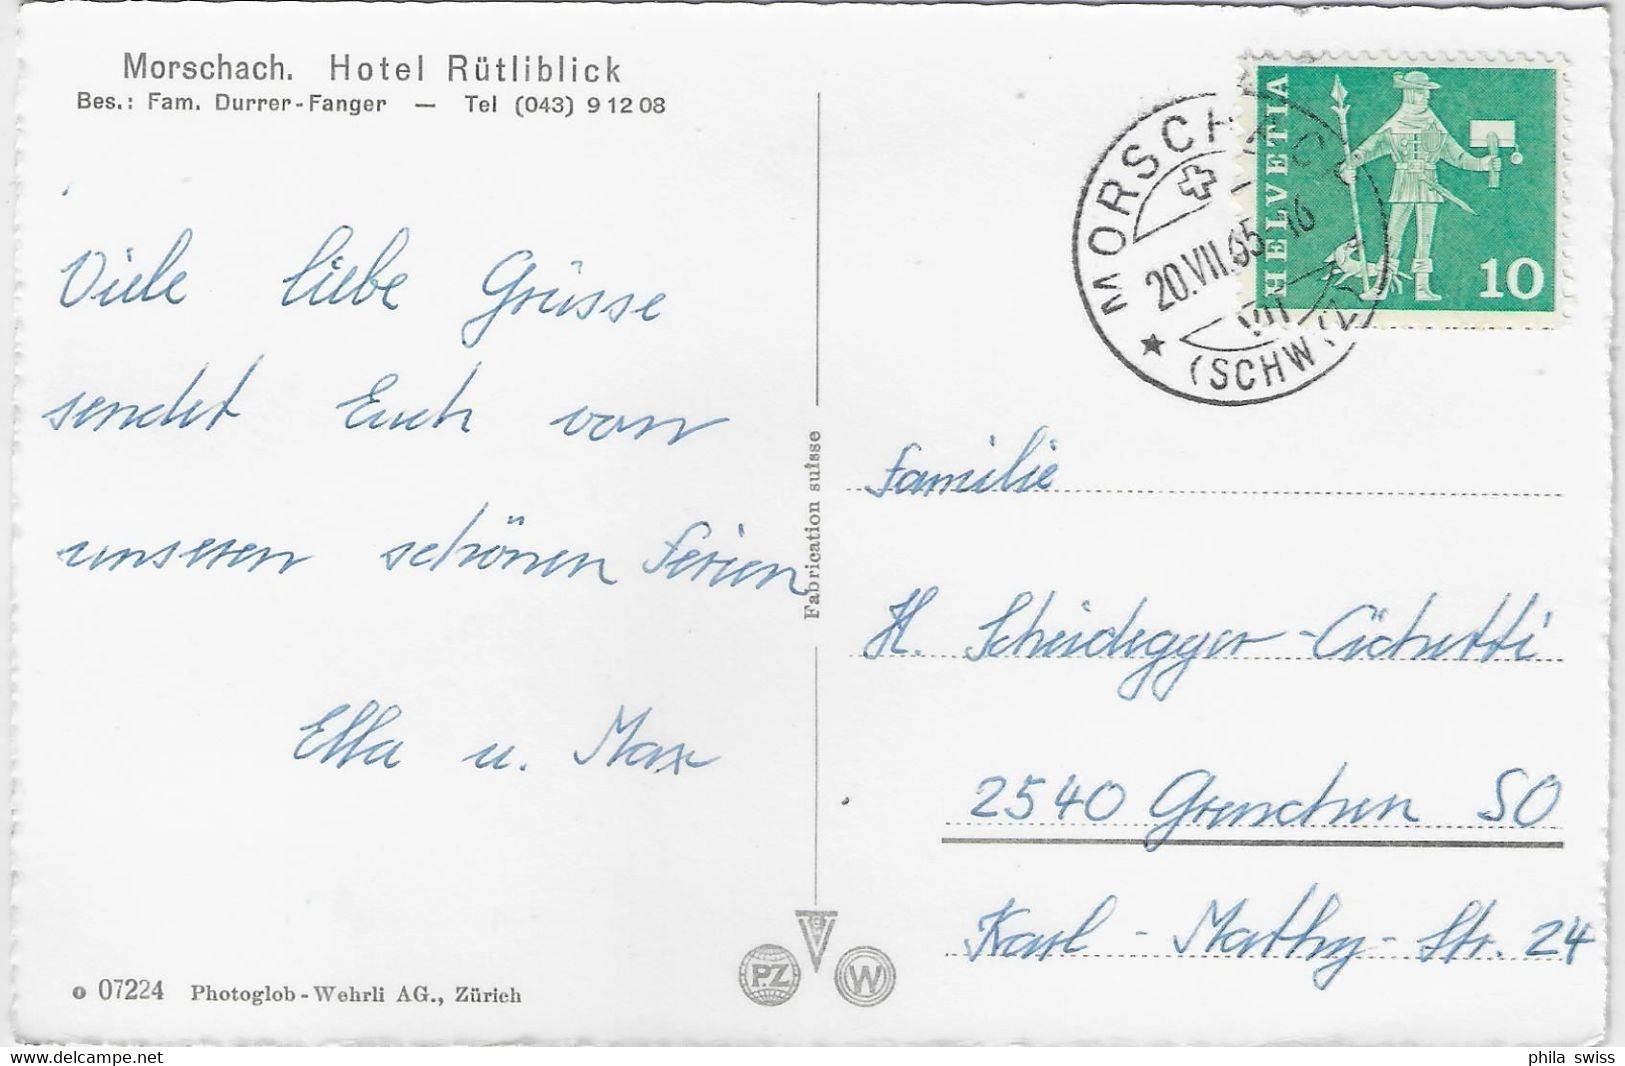 Morschach. Hotel Rütliblick
Bes.: Fam. Durrer-Fanger — Tel (043) 9 12 08
HELVETIA
10
MORSCHACH
20.VII.65-16
VII
(SCHWYZ)
Viele liebe Grüsse
sendet Euch von
unseren schönen Ferien
Ella u. Max
Fabrication suisse
Familie
H. Scheidegger-
2540 Grenchen SO
Karl-Mathy-Str. 24
PZ
W
07224 Photoglob-Wehrli AG., Zürich
www.delcampe.net
phila swiss